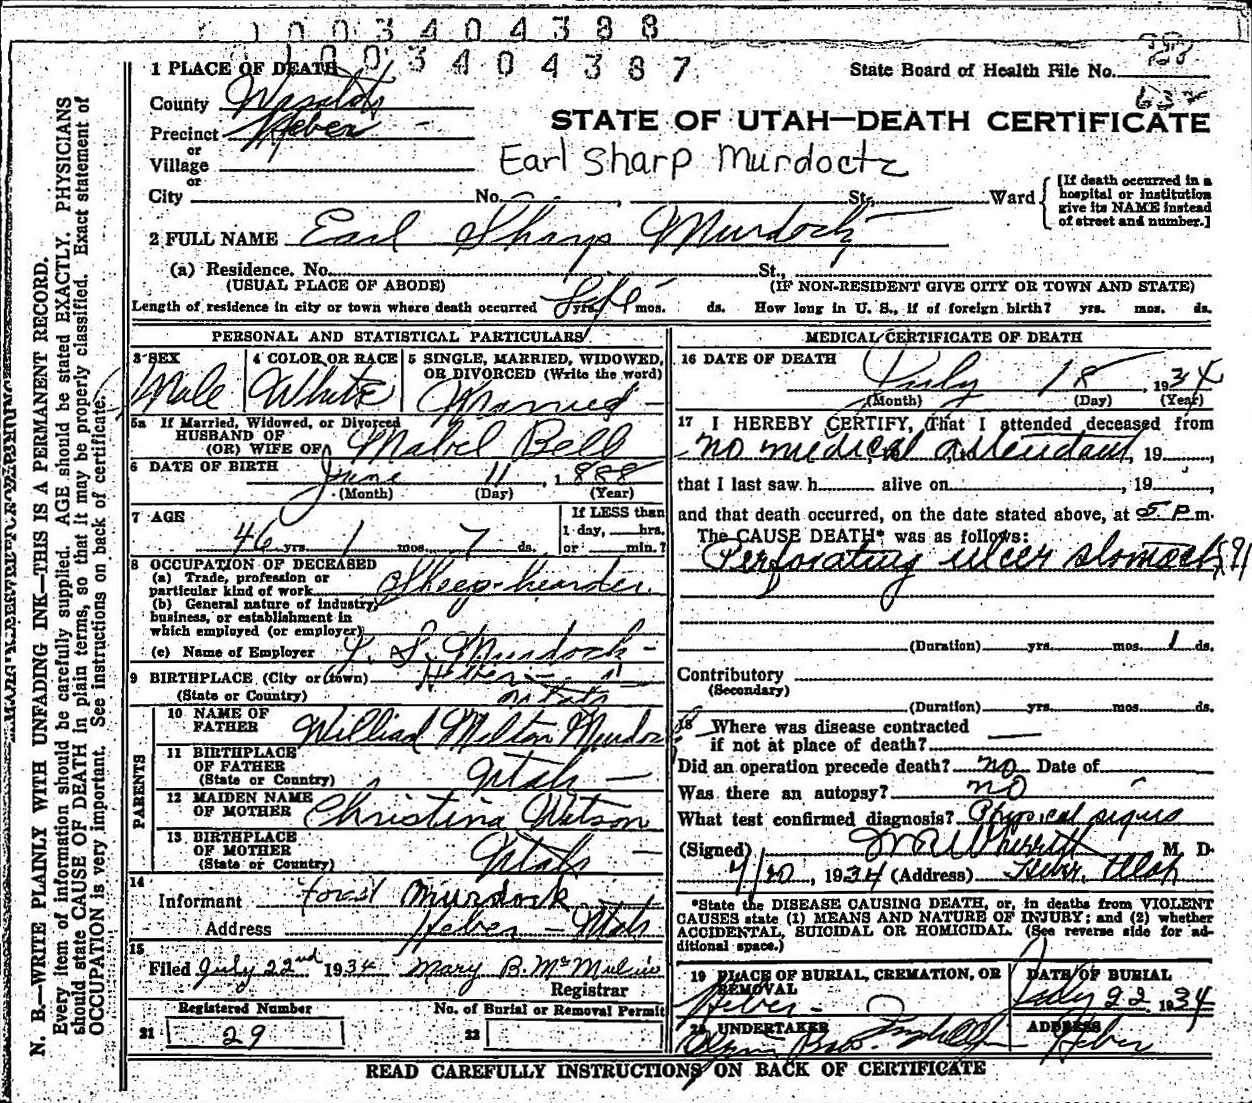 1 0 0 3 4 0 4 3 8 8
1 0 0 3 4 0 4 3 8 7
1 PLACE OF DEATH
State Board of Health File No.
County Wasatch
Precinct Heber -
or
Village
or
STATE OF UTAH—DEATH CERTIFICATE
Earl Sharp Murdock
City No. St. Ward
[If death occurred in a hospital or institution give its NAME instead of street and number.]
2 FULL NAME Earl Sharp Murdock
(a) Residence. No. St.,
(USUAL PLACE OF ABODE) (IF NON-RESIDENT GIVE CITY OR TOWN AND STATE)
Length of residence in city or town where death occurred Life yrs. mos. ds. How long in U. S., if of foreign birth? yrs. mos. ds.
PERSONAL AND STATISTICAL PARTICULARS
3 SEX
Male
4 COLOR OR RACE
White
5 SINGLE, MARRIED, WIDOWED,
OR DIVORCED (Write the word)
Married -
5a If Married, Widowed, or Divorced
HUSBAND OF
(OR) WIFE OF Mabel Bell
6 DATE OF BIRTH June 11, 1888
(Month) (Day) (Year)
7 AGE
46 yrs. 1 mos. 7 ds.
If LESS than
1 day, hrs.
or min.?
8 OCCUPATION OF DECEASED
(a) Trade, profession or
particular kind of work Sheep-hearder
(b) General nature of industry,
business, or establishment in
which employed (or employer)
(c) Name of Employer Murdock -
9 BIRTHPLACE (City or town) Heber -
(State or Country) Utah
PARENTS
10 NAME OF
FATHER Williad Milton Murdock
11 BIRTHPLACE
OF FATHER
(State or Country) Utah -
12 MAIDEN NAME
OF MOTHER Christina Watson
13 BIRTHPLACE
OF MOTHER
(State or Country) Utah -
14
Informant Forest Murdock
Address Heber - Utah
15
Filed July 22nd 1934 Mary B. McMullin
Registrar
Registered Number No. of Burial or Removal Permit
21 29 22
MEDICAL CERTIFICATE OF DEATH
16 DATE OF DEATH
July 18, 1934
(Month) (Day) (Year)
17 I HEREBY CERTIFY, That I attended deceased from
no medical attendant, 19 ,
that I last saw h alive on , 19 ,
and that death occurred, on the date stated above, at 5 P m.
The CAUSE DEATH* was as follows:
Perforating ulcer stomach
(Duration) yrs. mos. 1 ds.
Contributory
(Secondary)
(Duration) yrs. mos. ds.
18 Where was disease contracted
if not at place of death?
Did an operation precede death? no Date of
Was there an autopsy? no
What test confirmed diagnosis? Physical signs
(Signed) M. D.
7/20, 1934 (Address) Heber, Utah
*State the DISEASE CAUSING DEATH, or, in deaths from VIOLENT
CAUSES state (1) MEANS AND NATURE OF INJURY; and (2) whether
ACCIDENTAL, SUICIDAL OR HOMICIDAL. (See reverse side for ad-
ditional space.)
19 PLACE OF BURIAL, CREMATION, OR
REMOVAL
Heber -
DATE OF BURIAL
July 22 1934
20 UNDERTAKER
ADDRESS
Heber
READ CAREFULLY INSTRUCTIONS ON BACK OF CERTIFICATE
N. B.—WRITE PLAINLY WITH UNFADING INK—THIS IS A PERMANENT RECORD.
Every item of information should be carefully supplied. AGE should be stated EXACTLY. PHYSICIANS
should state CAUSE OF DEATH in plain terms, so that it may be properly classified. Exact statement of
OCCUPATION is very important. See instructions on back of certificate.